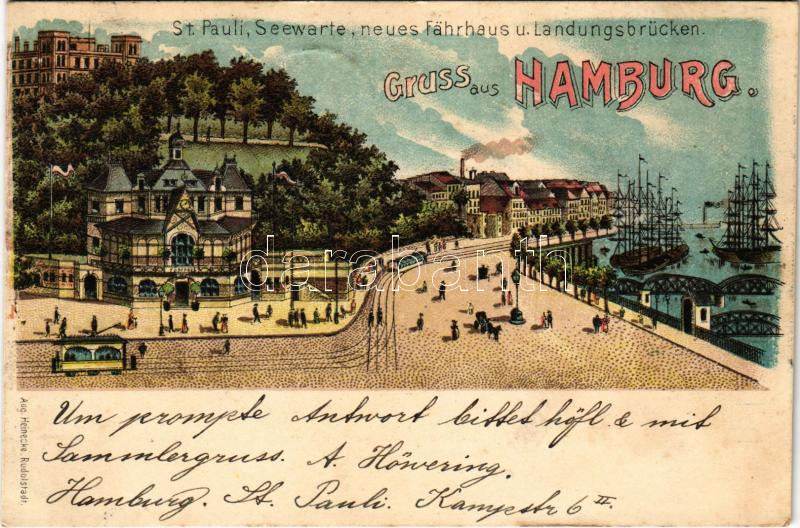 St. Pauli, Seewarte, neues Fährhaus u. Landungsbrücken.
Gruss aus HAMBURG.
darabanth
Um prompte Antwort bittet höfl. & mit
Sammlergruss. A. Höwering.
Hamburg. St. Pauli. Kampstr 6 II.
Aug. Heinecke, Rudolstadt.